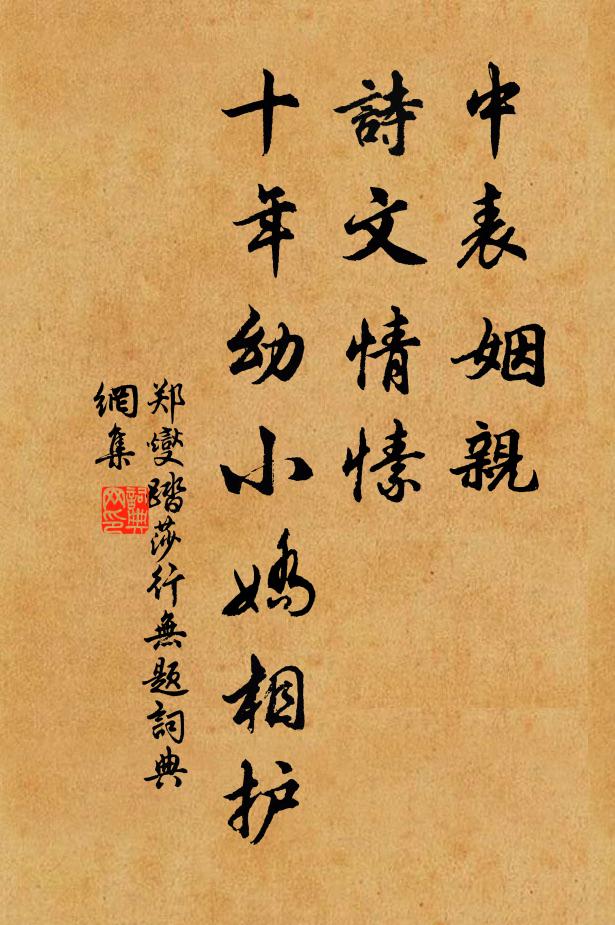 中表姻親
詩文情愫
十年幼小嬌相护
郑燮踏莎行無題詞典
網集
詞典
网印